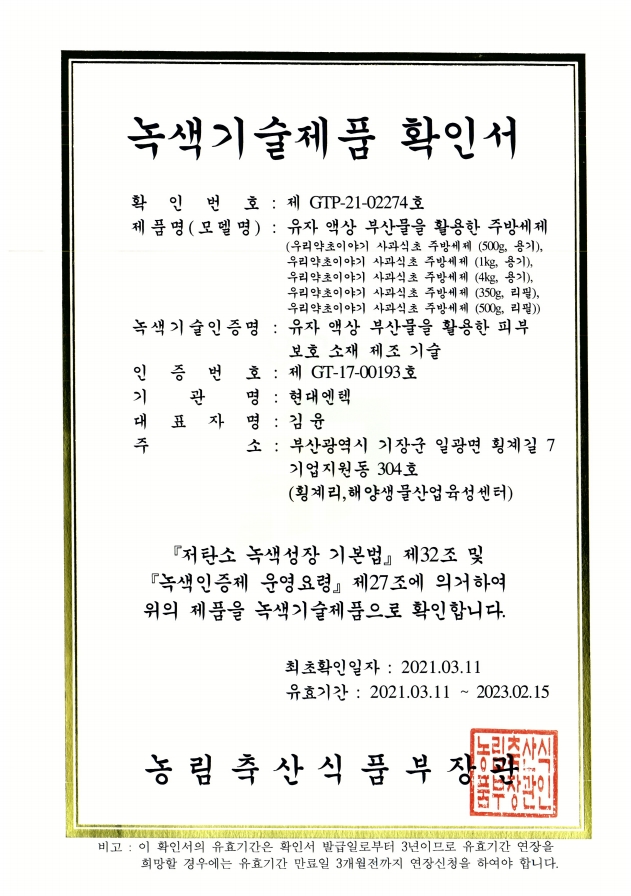 녹색기술제품 확인서
확 인 번 호 : 제 GTP-21-02274호
제품명(모델명) : 유자 액상 부산물을 활용한 주방세제
(우리약초이야기 사과식초 주방세제 (500g, 용기),
우리약초이야기 사과식초 주방세제 (1kg, 용기),
우리약초이야기 사과식초 주방세제 (4kg, 용기),
우리약초이야기 사과식초 주방세제 (350g, 리필),
우리약초이야기 사과식초 주방세제 (500g, 리필))
녹색기술인증명 : 유자 액상 부산물을 활용한 피부
보호 소재 제조 기술
인 증 번 호 : 제 GT-17-00193호
기 관 명 : 현대엔텍
대 표 자 명 : 김 윤
주 소 : 부산광역시 기장군 일광면 횡계길 7
기업지원동 304호
(횡계리,해양생물산업육성센터)
『저탄소 녹색성장 기본법』 제32조 및
『녹색인증제 운영요령』 제27조에 의거하여
위의 제품을 녹색기술제품으로 확인합니다.
최초확인일자 : 2021.03.11
유효기간 : 2021.03.11 ~ 2023.02.15
농 림 축 산 식 품 부 장 관
농림축산식
품부장관인
비고 : 이 확인서의 유효기간은 확인서 발급일로부터 3년이므로 유효기간 연장을
희망할 경우에는 유효기간 만료일 3개월전까지 연장신청을 하여야 합니다.